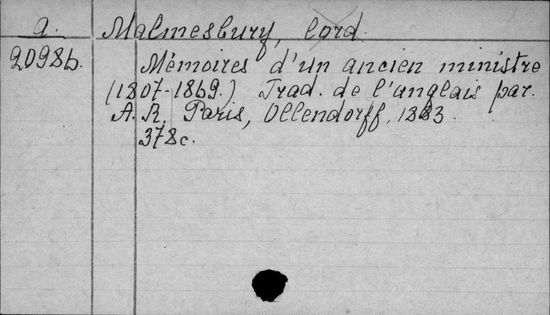 a. Malmesbury, lord.
2098b. Mémoires d'un ancien ministre
(1807-1869.) Trad. de l'anglais par.
A. R. Paris, Ollendorff, 1883.
378c.